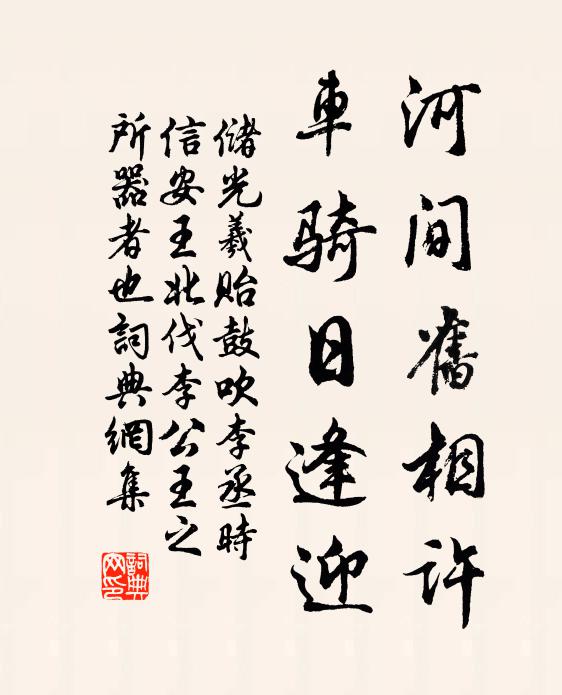 河间舊相许
車骑日逢迎
储光羲贻鼓吹李丞時
信安王北伐李公王之
所器者也詞典網集
詞典网印